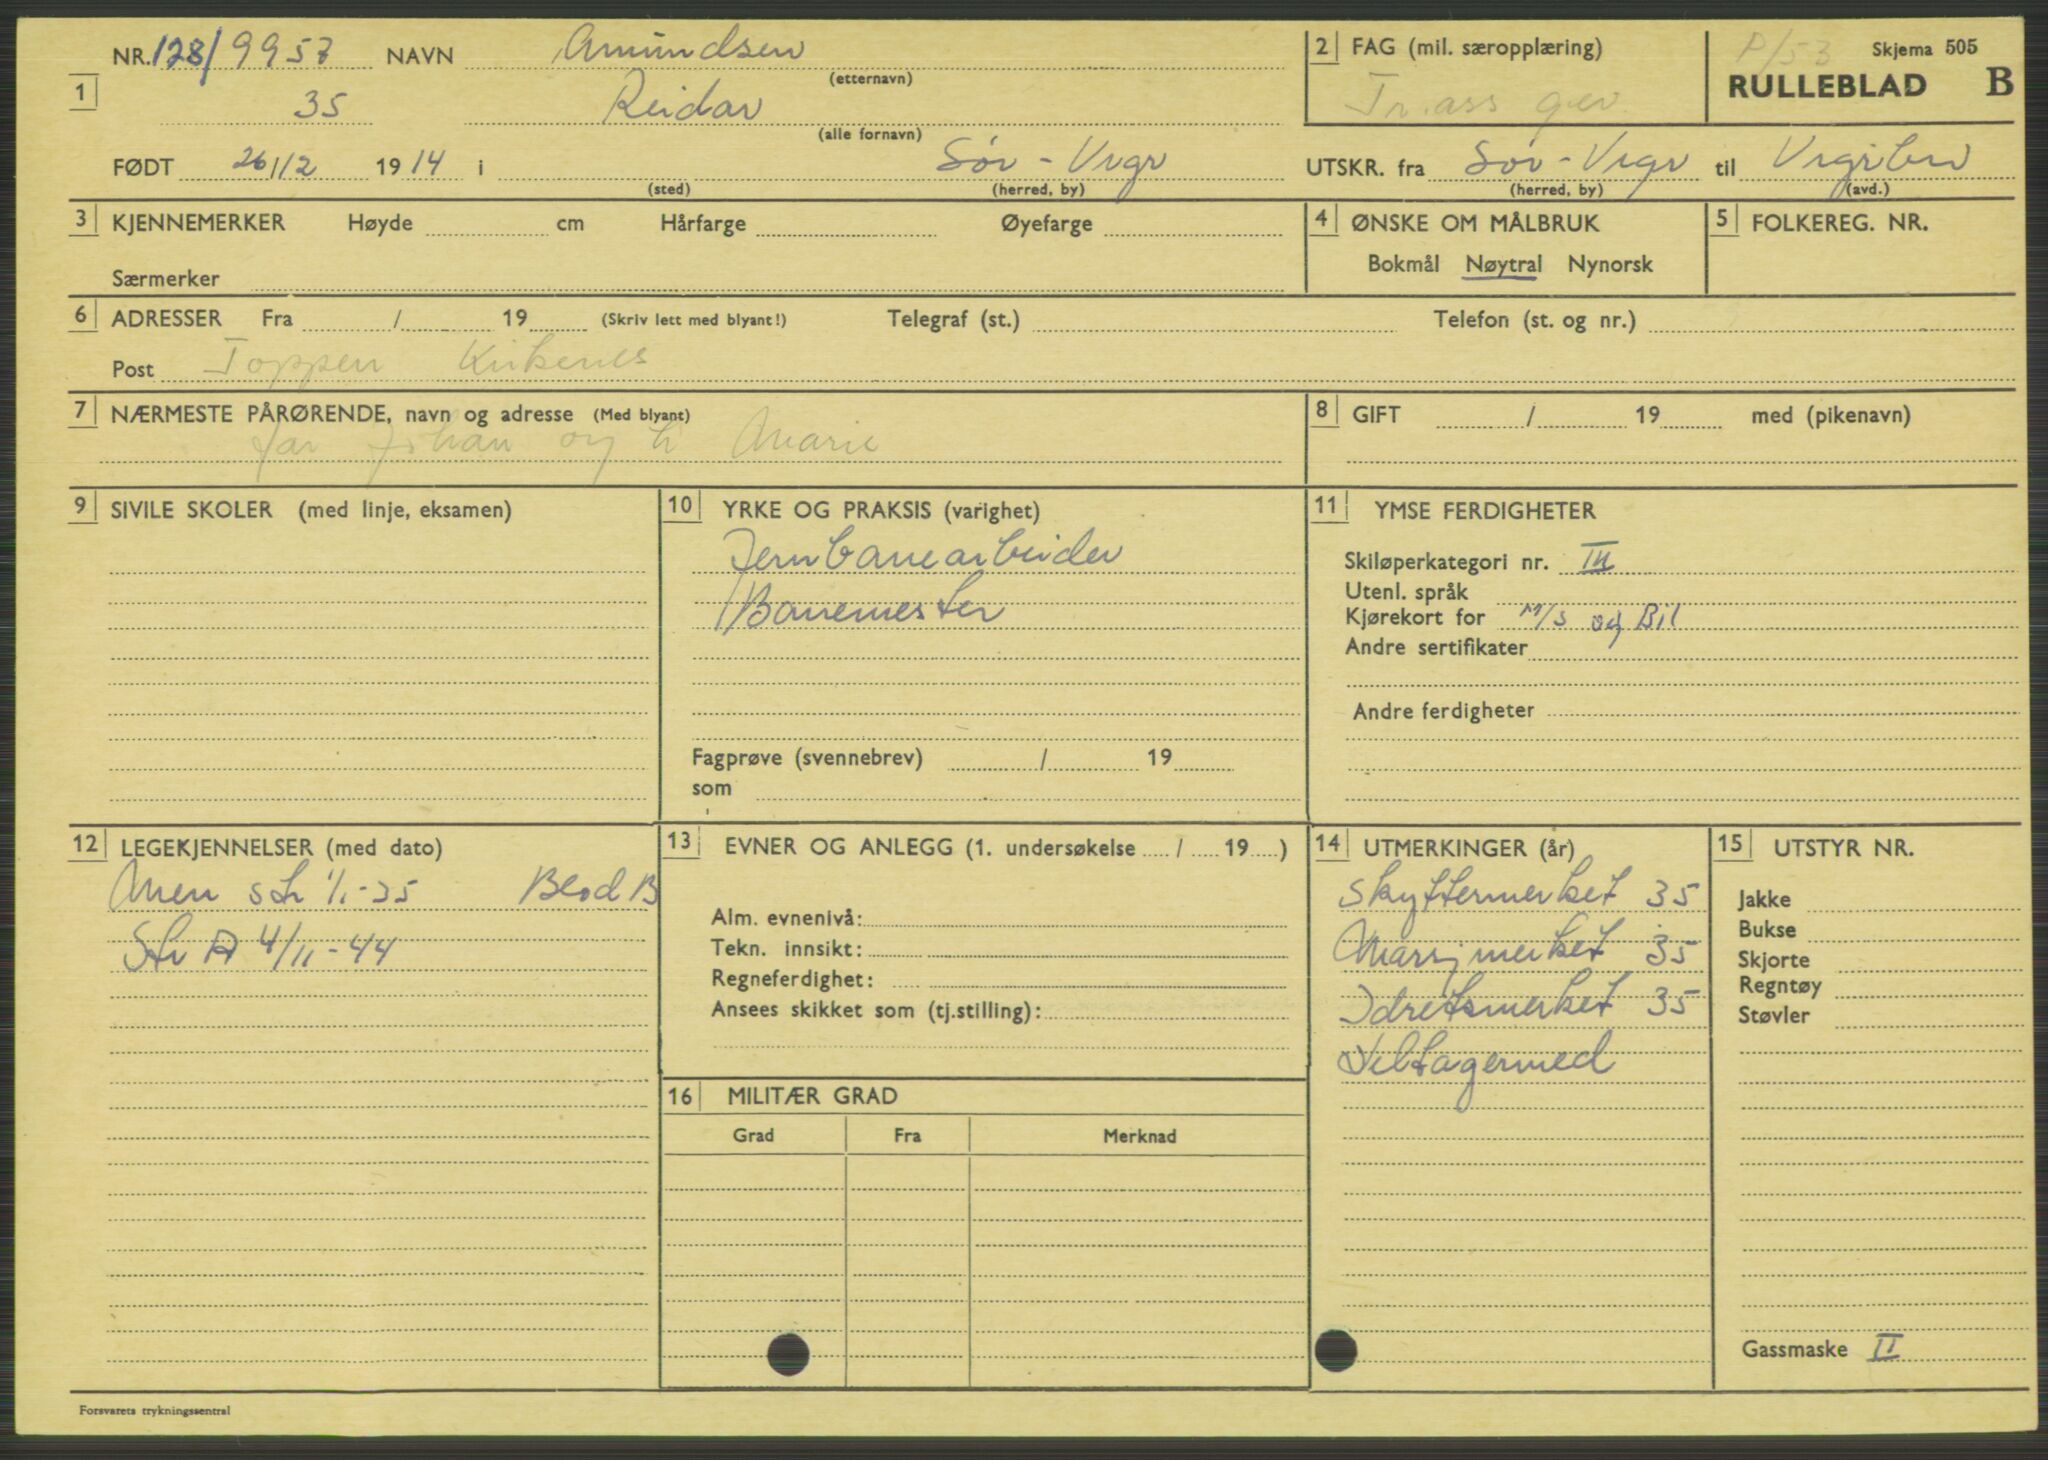 NR. 128/9957 NAVN Amundsen
(etternavn)
1 35 Reidar
(alle fornavn)
FØDT 26/12 1914 i Sør-Vrgr
(sted) (herred, by)
2 FAG (mil. særopplæring)
Tr.ass gev
P/53 Skjema 505
RULLEBLAD B
UTSKR. fra Sør-Vrgr til Vrgrbn
(herred, by) (avd.)
3 KJENNEMERKER Høyde cm Hårfarge Øyefarge
Særmerker
4 ØNSKE OM MÅLBRUK
Bokmål Nøytral Nynorsk
5 FOLKEREG. NR.
6 ADRESSER Fra / 19 (Skriv lett med blyant!) Telegraf (st.) Telefon (st. og nr.)
Post Toppen Kirkenes
7 NÆRMESTE PÅRØRENDE, navn og adresse (Med blyant)
far Johan og h Marie
8 GIFT / 19 med (pikenavn)
9 SIVILE SKOLER (med linje, eksamen)
10 YRKE OG PRAKSIS (varighet)
Jernbanearbeider
Banemester
Fagprøve (svennebrev) / 19
som
11 YMSE FERDIGHETER
Skiløperkategori nr. III
Utenl. språk
Kjørekort for M/S og Bil
Andre sertifikater
Andre ferdigheter
12 LEGEKJENNELSER (med dato)
Men str 1/1-35 Blod B
Str A 4/11-44
13 EVNER OG ANLEGG (1. undersøkelse / 19 )
Alm. evnenivå:
Tekn. innsikt:
Regneferdighet:
Ansees skikket som (tj.stilling):
14 UTMERKINGER (år)
Skyttermerket 35
Marsjmerket 35
Idretsmerket 35
Deltagermed
15 UTSTYR NR.
Jakke
Bukse
Skjorte
Regntøy
Støvler
Gassmaske II
16 MILITÆR GRAD
Grad Fra Merknad
Forsvarets trykningssentral